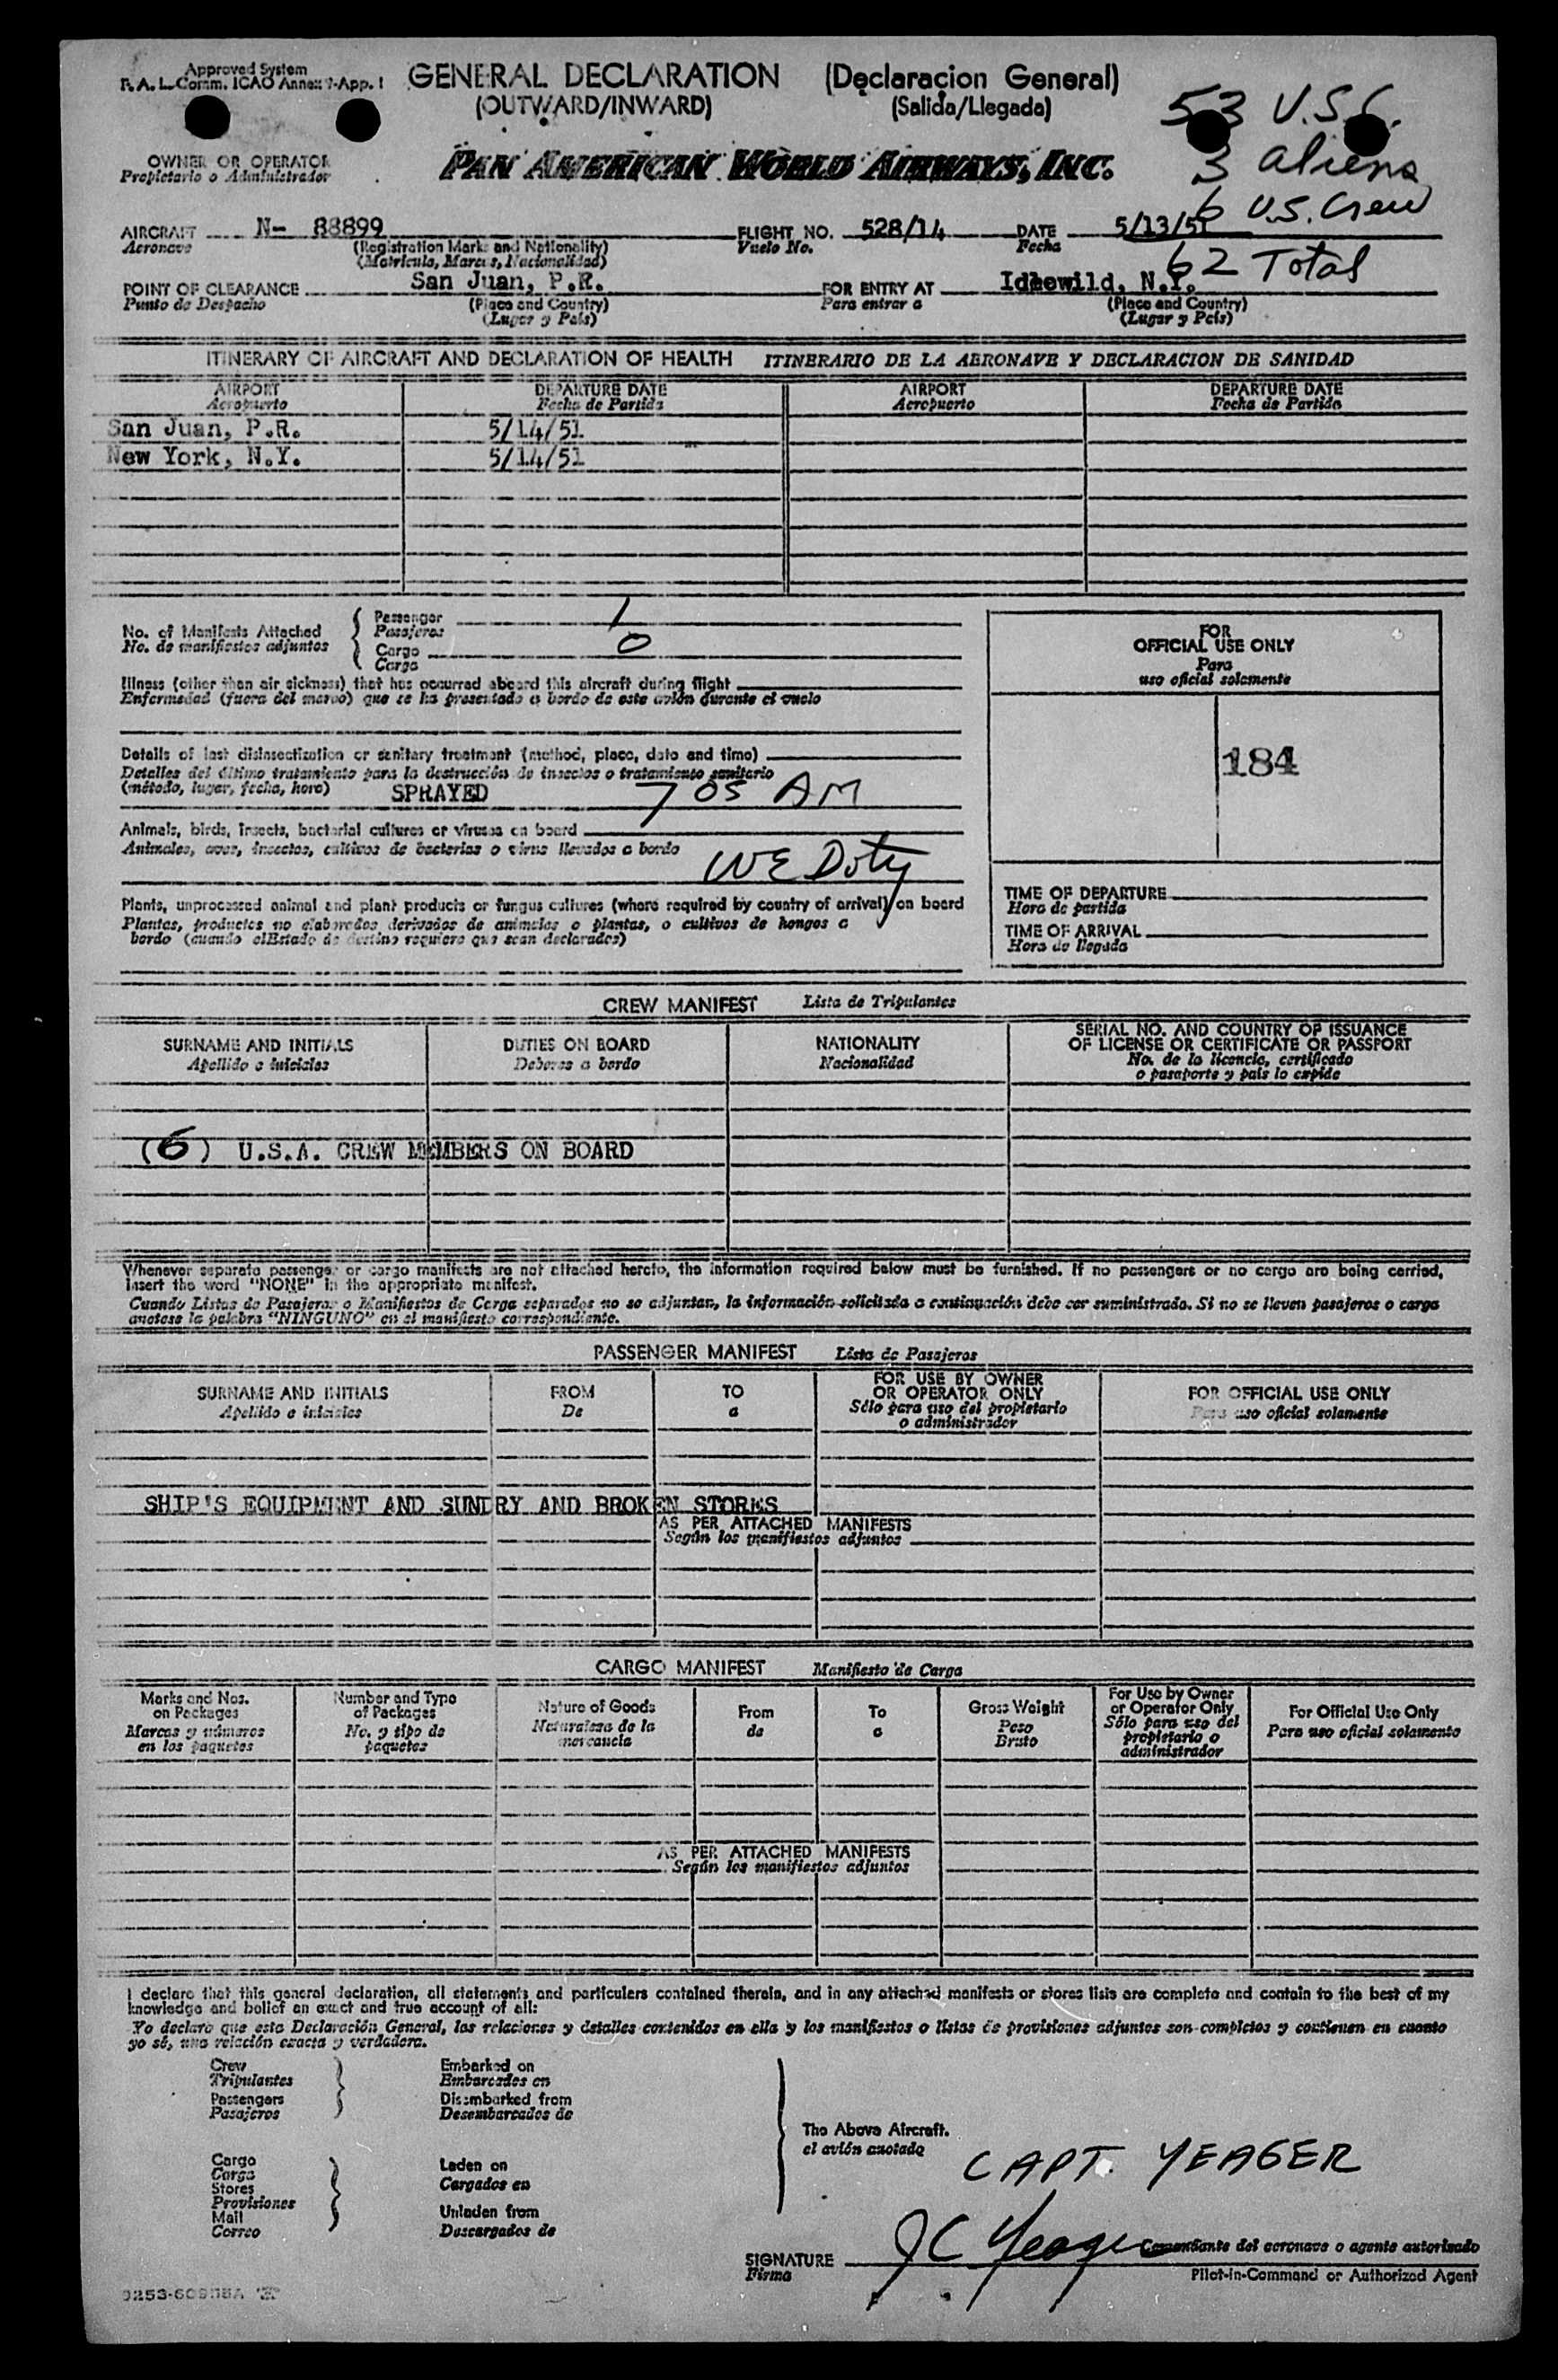 Approved System
F. A. L. Comm. ICAO Annex 9-App. I
GENERAL DECLARATION (Declaracion General)
(OUTWARD/INWARD) (Salida/Llegada)
53 U.S.C.
3 aliens
6 U.S. Crew
62 Total
OWNER OR OPERATOR
Propietario o Administrador
PAN AMERICAN WORLD AIRWAYS, INC.
AIRCRAFT N- 88899 FLIGHT NO. 528/14 DATE 5/13/51
Aeronave (Registration Marks and Nationality) Vuelo No. Fecha
(Matricula, Marcas, Nacionalidad)
POINT OF CLEARANCE San Juan, P.R. FOR ENTRY AT Idlewild, N.Y.
Punto de Despacho (Place and Country) Para entrar a (Place and Country)
(Lugar y Pais) (Lugar y Pais)
ITINERARY OF AIRCRAFT AND DECLARATION OF HEALTH ITINERARIO DE LA AERONAVE Y DECLARACION DE SANIDAD
AIRPORT DEPARTURE DATE AIRPORT DEPARTURE DATE
Aeropuerto Fecha de Partida Aeropuerto Fecha de Partida
San Juan, P.R. 5/14/51
New York, N.Y. 5/14/51
No. of Manifests Attached
No. de manifiestos adjuntos
Passenger 1
Pasajeros
Cargo 0
Carga
Illness (other than air sickness) that has occurred aboard this aircraft during flight
Enfermedad (fuera del mareo) que se ha presentado a bordo de este avión durante el vuelo
Details of last disinsectization or sanitary treatment (method, place, date and time)
Detalles del último tratamiento para la destrucción de insectos o tratamiento sanitario
(método, lugar, fecha, hora) SPRAYED 7 05 AM
Animals, birds, insects, bacterial cultures or viruses on board
Animales, aves, insectos, cultivos de bacterias o virus llevados a bordo
WE Doty
Plants, unprocessed animal and plant products or fungus cultures (where required by country of arrival) on board
Plantas, productos no elaborados derivados de animales o plantas, o cultivos de hongos a
bordo (cuando elEstado de destino requiera que sean declarados)
FOR
OFFICIAL USE ONLY
Para
uso oficial solamente
184
TIME OF DEPARTURE
Hora de partida
TIME OF ARRIVAL
Hora de llegada
CREW MANIFEST Lista de Tripulantes
SURNAME AND INITIALS DUTIES ON BOARD NATIONALITY SERIAL NO. AND COUNTRY OF ISSUANCE
OF LICENSE OR CERTIFICATE OR PASSPORT
Apellido e iniciales Deberes a bordo Nacionalidad No. de la licencia, certificado
o pasaporte y pais lo expide
(6) U.S.A. CREW MEMBERS ON BOARD
Whenever separate passenger or cargo manifests are not attached hereto, the information required below must be furnished. If no passengers or no cargo are being carried,
insert the word "NONE" in the appropriate manifest.
Cuando Listas de Pasajeros o Manifiestos de Carga separados no se adjuntan, la información solicitada a continuación debe ser suministrada. Si no se lleven pasajeros o carga
anotese la palabra "NINGUNO" en el manifiesto correspondiente.
PASSENGER MANIFEST Lista de Pasajeros
SURNAME AND INITIALS FROM TO FOR USE BY OWNER
OR OPERATOR ONLY FOR OFFICIAL USE ONLY
Apellido e iniciales De a Sólo para uso del propietario
o administrador Para uso oficial solamente
SHIP'S EQUIPMENT AND SUNDRY AND BROKEN STORES
AS PER ATTACHED MANIFESTS
Según los manifiestos adjuntos
CARGO MANIFEST Manifiesto de Carga
Marks and Nos.
on Packages
Marcas y números
en los paquetes
Number and Type
of Packages
No. y tipo de
paquetes
Nature of Goods
Naturaleza de la
mercancia
From
de
To
a
Gross Weight
Peso
Bruto
For Use by Owner
or Operator Only
Sólo para uso del
propietario o
administrador
For Official Use Only
Para uso oficial solamente
AS PER ATTACHED MANIFESTS
Según los manifiestos adjuntos
I declare that this general declaration, all statements and particulars contained therein, and in any attached manifests or stores lists are complete and contain to the best of my
knowledge and belief an exact and true account of all:
Yo declaro que esta Declaración General, las relaciones y detalles contenidos en ella y los manifiestos o listas de provisiones adjuntos son completos y contienen en cuanto
yo sé, una relación exacta y verdadera.
Crew
Tripulantes
Passengers
Pasajeros
Embarked on
Embarcados en
Disembarked from
Desembarcados de
Cargo
Carga
Stores
Provisiones
Mail
Correo
Laden on
Cargados en
Unladen from
Descargados de
The Above Aircraft.
el avión anotado
CAPT. YEAGER
SIGNATURE JC Yeager Comandante del aeronave o agente autorizado
Firma Pilot-in-Command or Authorized Agent